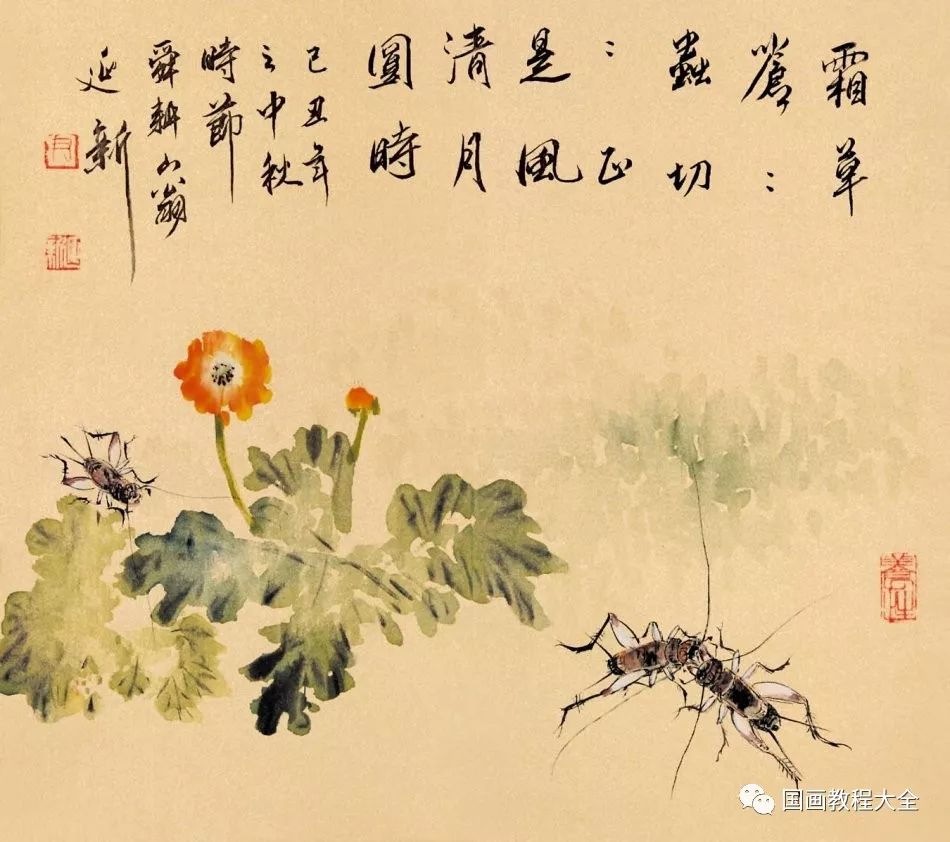 霜草
蒼：
蟲切
：正
是風
清月
圓時
己丑年
之中秋
時節
舜耕山翁
延新
国画教程大全